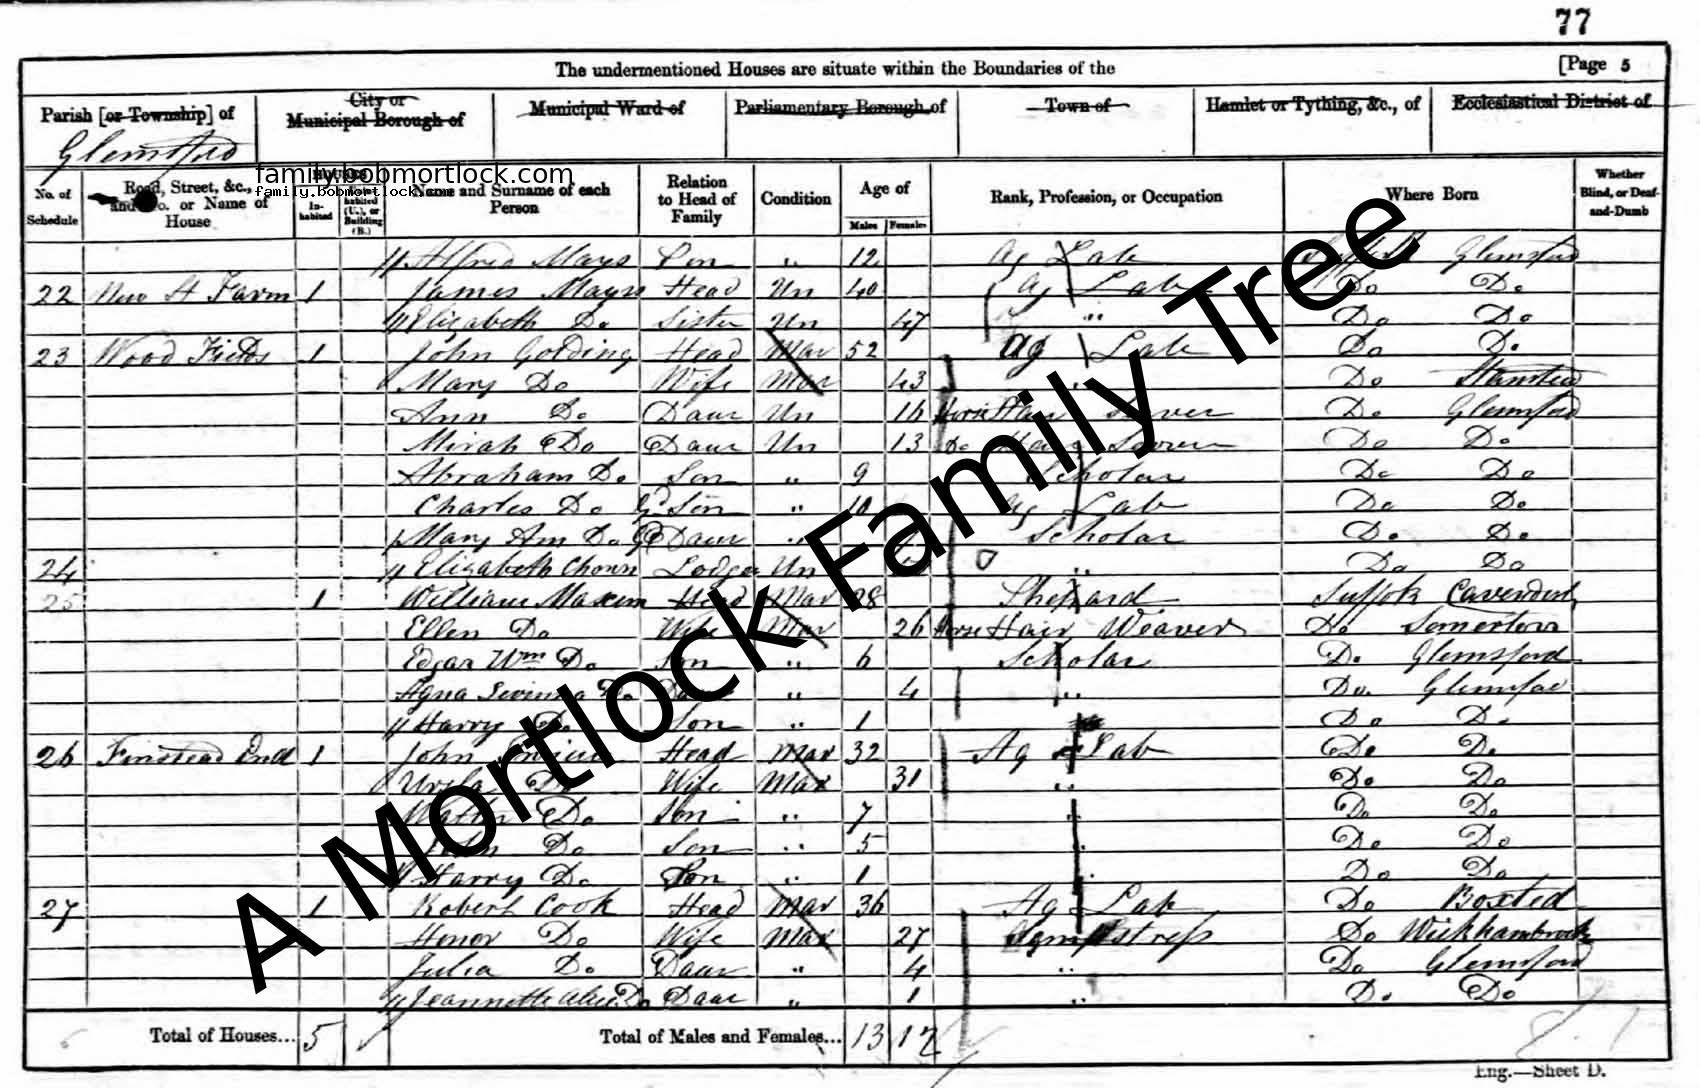 77
The undermentioned Houses are situate within the Boundaries of the [Page 5
Parish [or Township] of City or Municipal Borough of Municipal Ward of Parliamentary Borough of Town of Hamlet or Tything, &c., of Ecclesiastical District of
Glemsford
family.bobmortlock.com
family.bobmortlock.com
No. of Schedule Road, Street, &c., and No. or Name of House In-habited habited (U.), or Building (B.) Name and Surname of each Person Relation to Head of Family Condition Age of Males Females Rank, Profession, or Occupation Where Born Whether Blind, or Deaf-and-Dumb
Alfred Mays Son " 12 Ag Lab Suffolk Glemsford
22 New St Farm 1 James Mays Head Un 40 Ag Lab Do Do
Elizabeth Do Sister Un 47 " Do Do
23 Wood Fields 1 John Golding Head Mar 52 Ag Lab Do Do
Mary Do Wife Mar 43 Do Stanstead
Ann Do Daur Un 16 Horse Hair Do Glemsford
Mirah Do Daur Un 13 Do Hair Do Do
Abraham Do Son " 9 Scholar Do Do
Charles Do G Son " 10 Ag Lab Do Do
Mary Ann Do G Daur " Scholar Do Do
24 Elizabeth Lodger Un " Do Do
25 1 William Maxim Head Mar 28 Shepard Suffolk Cavendish
Ellen Do Wife Mar 26 Horse Hair Weaver Do Somerton
Edgar Wm Do Son " 6 Scholar Do Glemsford
Do Daur " 4 " Do Glemsford
Harry Do Son " 1 Do Do
26 Finstead End 1 John Head Mar 32 Ag Lab Do Do
Ursla Do Wife Mar 31 " Do Do
Walter Do Son " 7 " Do Do
John Do Son " 5 " Do Do
Harry Do Son " 1 " Do Do
27 1 Robert Cook Head Mar 36 Ag Lab Do Boxted
Honor Do Wife Mar 27 Sempstress Do Wickhambrook
Julia Do Daur " 4 " Do Glemsford
Jeannette Alice Do Daur " 1 " Do Do
Total of Houses... 5 Total of Males and Females... 13 12
Eng.—Sheet D.
A Mortlock Family Tree